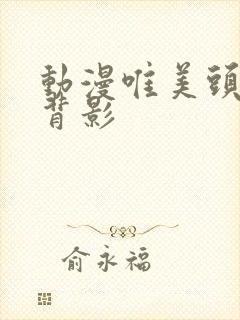 動漫唯美頭
背影
俞永福